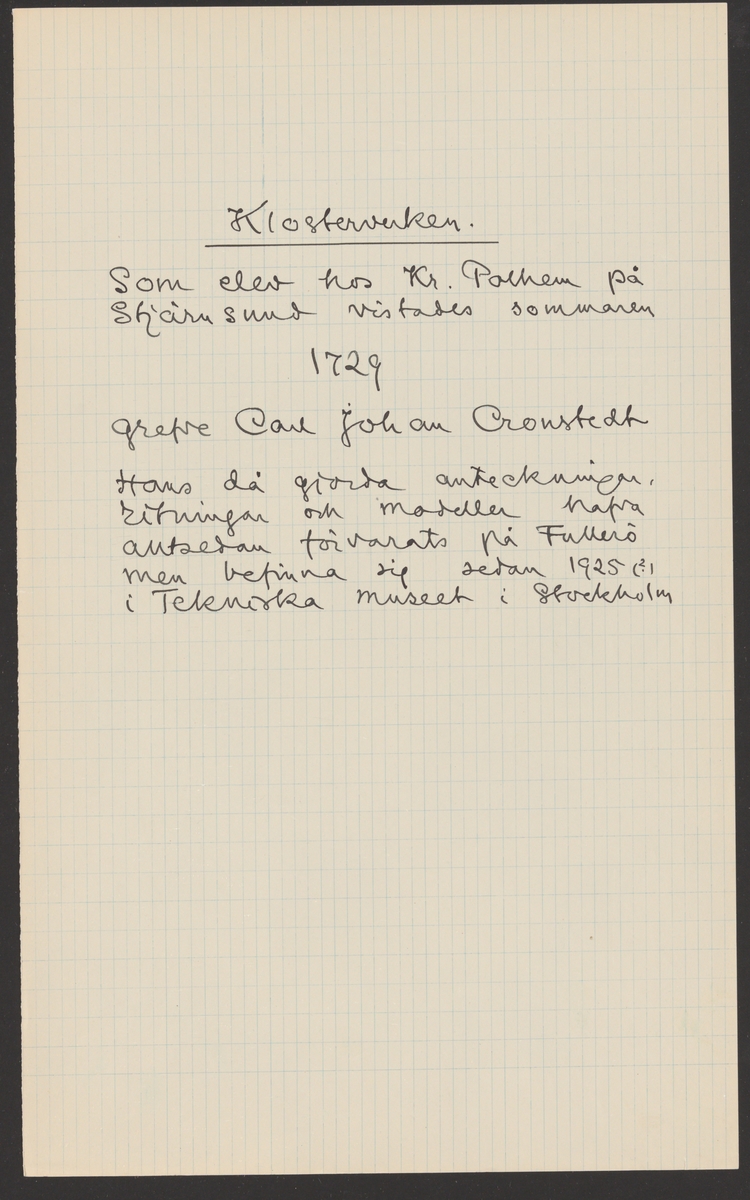 Klosterverken.
Som elev hos Kr. Polhem på
Stjärnsund vistades sommaren
1729
grefve Carl Johan Cronstedt
Hans då gjorda anteckningar,
ritningar och modeller hafva
alltsedan förvarats på Fullerö
men befinna sig sedan 1925 (?)
i Tekniska museet i Stockholm